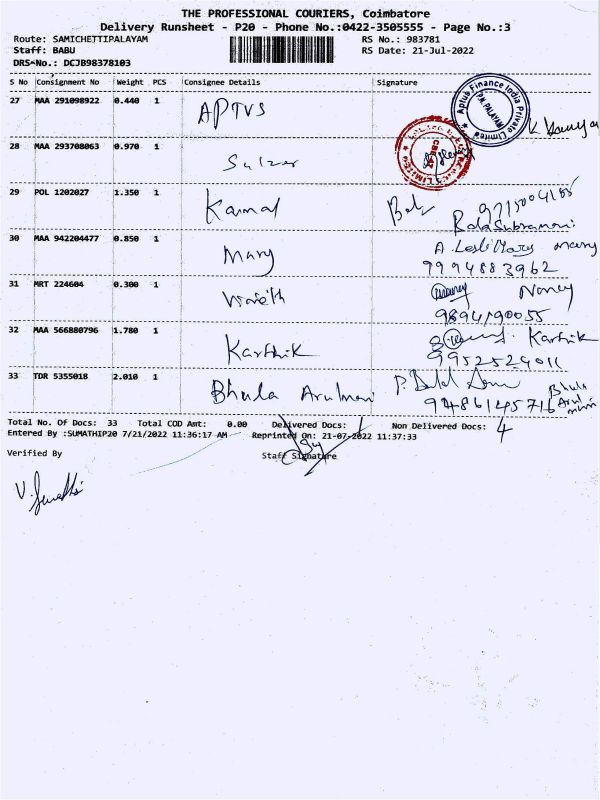 THE PROFESSIONAL COURIERS, Coimbatore
Delivery Runsheet - P20 - Phone No.:0422-3505555 - Page No.:3
Route: SAMICHETTIPALAYAM RS No.: 983781
Staff: BABU RS Date: 21-Jul-2022
DRS No.: DCJB98378103
S No Consignment No Weight PCS Consignee Details Signature
27 MAA 291098922 0.440 1 APTVS
Aptus Finance India Private Limited
P.N. PALAYAM
28 MAA 293708063 0.970 1 Sulzer
29 POL 1202027 1.350 1 Kamal
Bala Subramani
30 MAA 942204477 0.850 1 Mary A. Lesli Mary Mary
9994883962
31 MRT 224604 0.300 1 Nancy
9894190055
32 MAA 566880796 1.780 1 Karthik Karthik
9952524011
33 TDR 5355018 2.010 1 Bhula Arulmani
9486145716
Total No. Of Docs: 33 Total COD Amt: 0.00 Delivered Docs: Non Delivered Docs: 4
Entered By :SUMATHIP20 7/21/2022 11:36:17 AM Reprinted On: 21-07-2022 11:37:33
Verified By Staff Signature